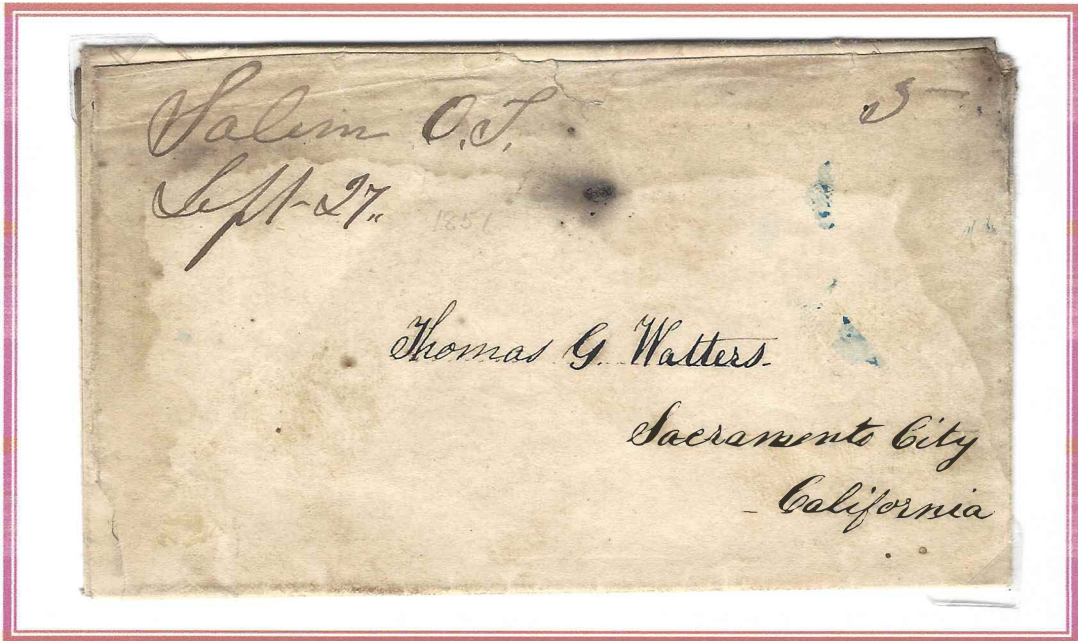 Salem O.T. 3
Sept-27.. 1851
Thomas G. Watters.
Sacramento City
California